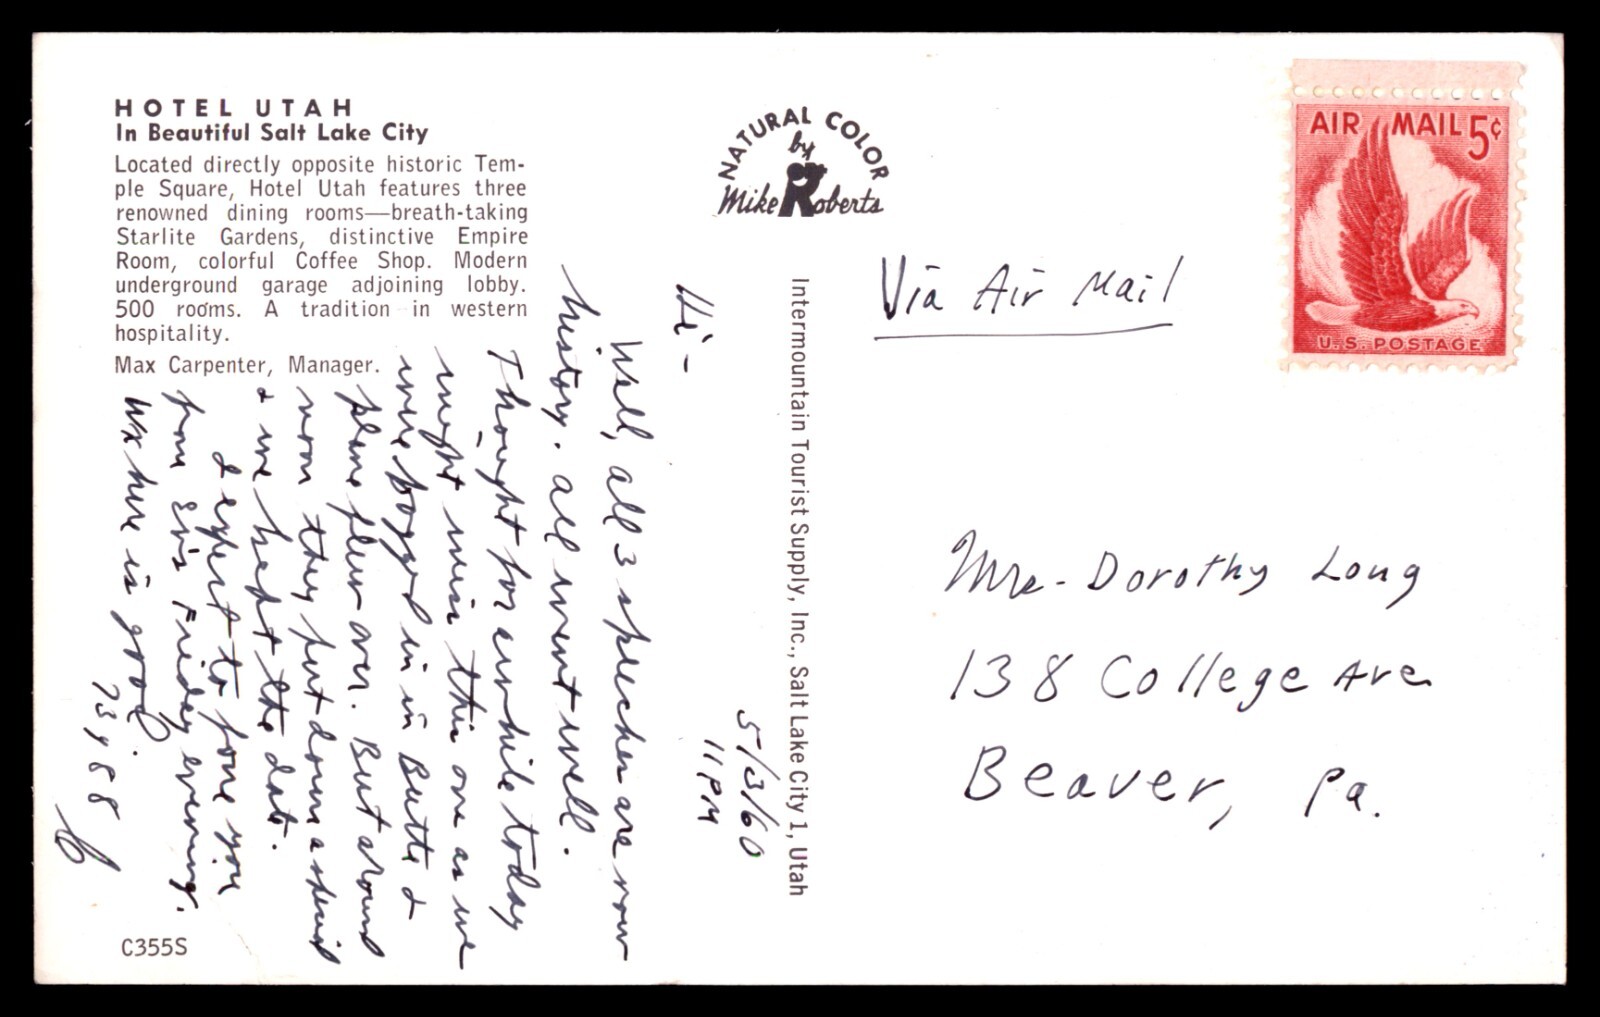 HOTEL UTAH
In Beautiful Salt Lake City
Located directly opposite historic Tem-
ple Square, Hotel Utah features three
renowned dining rooms—breath-taking
Starlite Gardens, distinctive Empire
Room, colorful Coffee Shop. Modern
underground garage adjoining lobby.
500 rooms. A tradition in western
hospitality.
Max Carpenter, Manager.
NATURAL COLOR
by
Mike Roberts
AIR MAIL 5¢
U.S. POSTAGE
Via Air Mail
Intermountain Tourist Supply, Inc., Salt Lake City 1, Utah
5/3/60
11 PM
Hi-
Well, all 3 speeches are now
history. All went well.
Thought for awhile today
might miss this one as we
were bogged in in Butte &
plane flew over. But around
noon they put down a special
& we kept the date.
I expect to fone you
from Friday evening.
Wx here is good
73 y 88
Mrs. Dorothy Long
138 College Ave
Beaver, Pa.
C355S